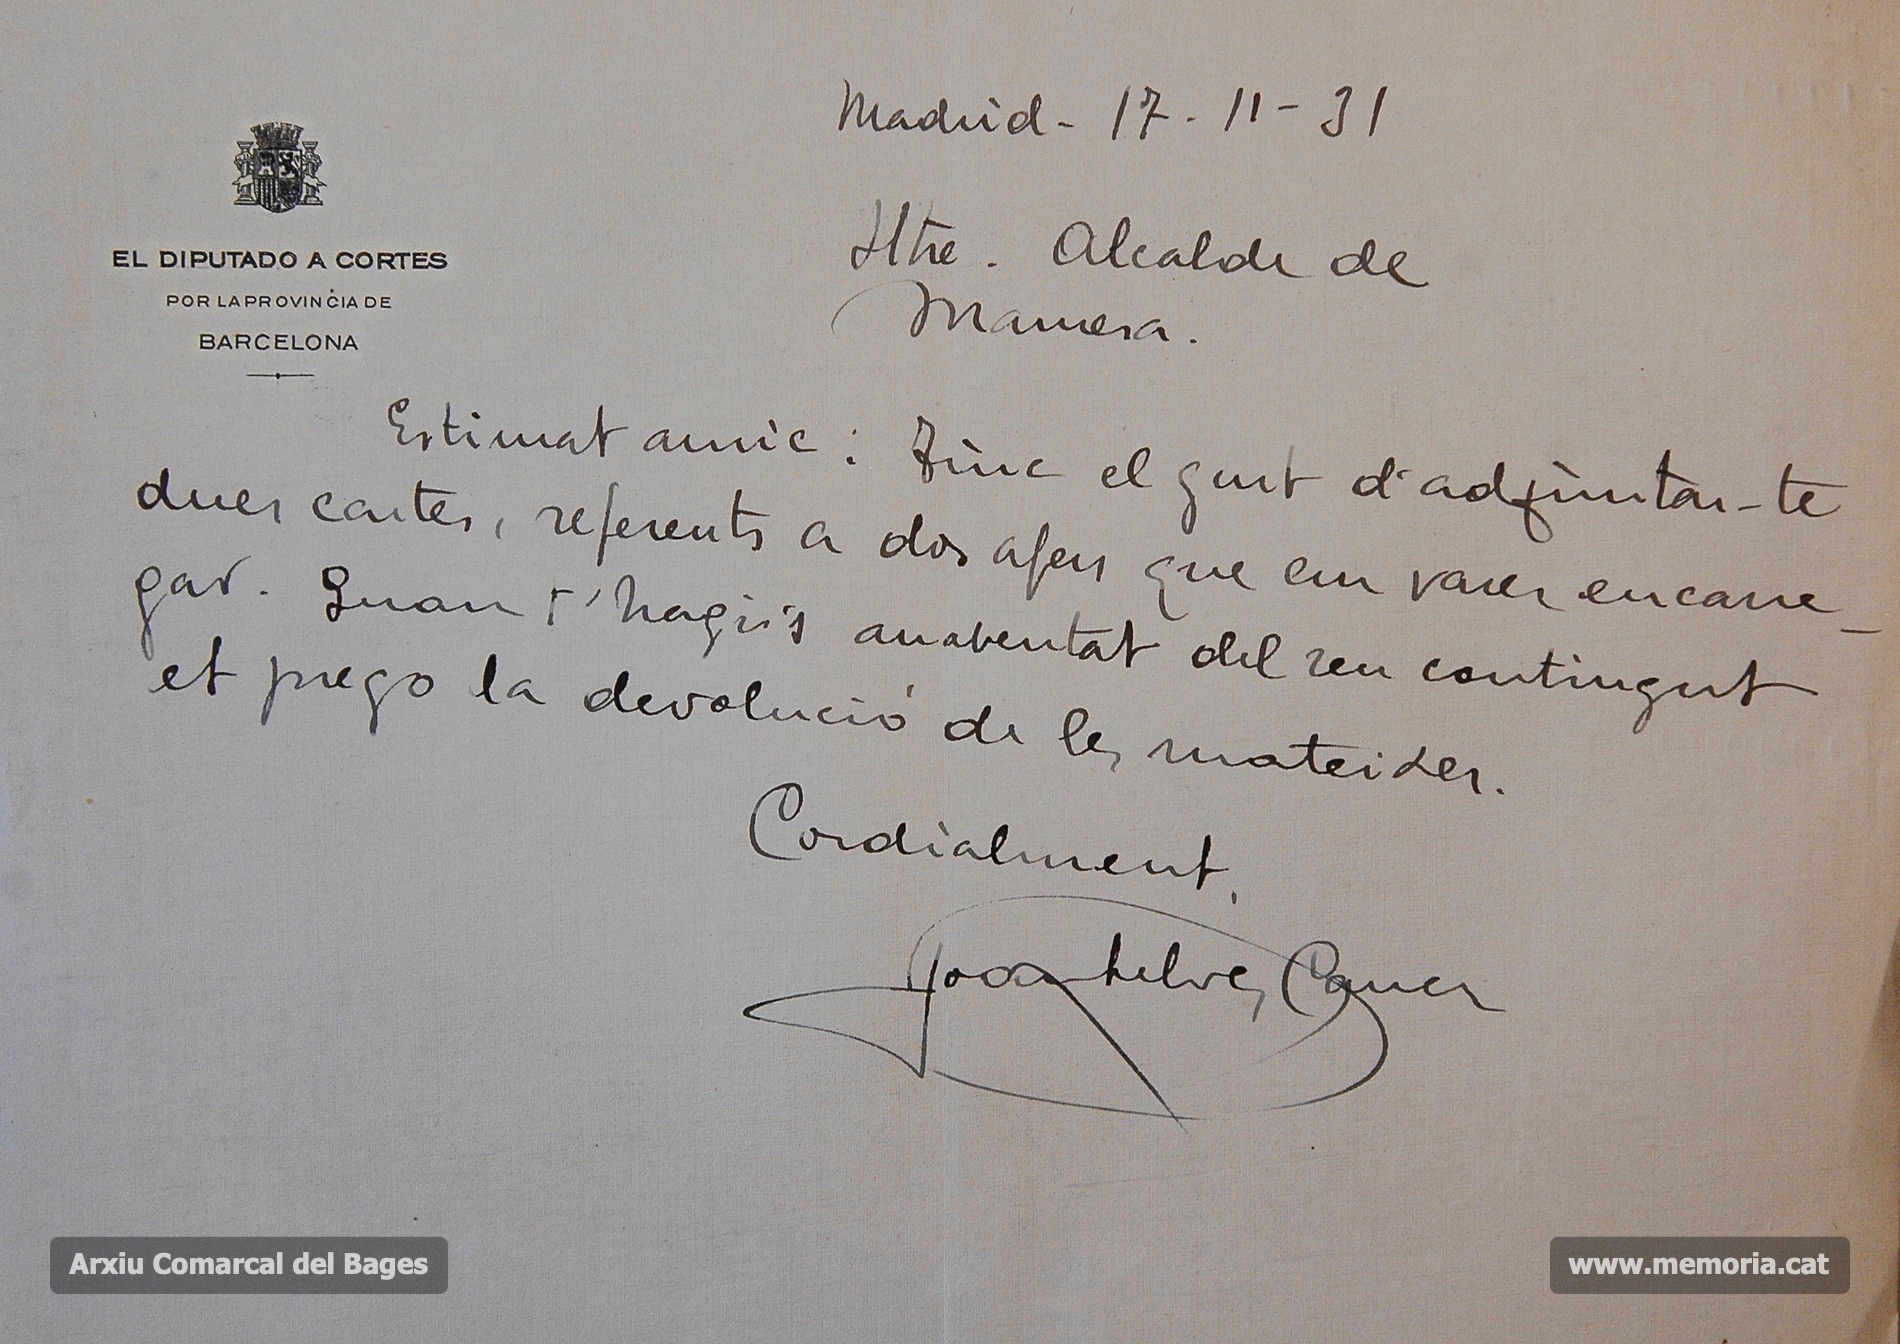 EL DIPUTADO A CORTES
POR LA PROVINCIA DE
BARCELONA
Madrid - 17 - 11 - 31
Iltre. Alcalde de
Manresa.
Estimat amic: Tinc el gust d'adjuntar-te
dues cartes, referents a dos afers que em vares encarre-
gar. Quan t'hagis assabentat del seu contingut
et prego la devolució de les mateixes.
Cordialment,
Joan Selves Carner
Arxiu Comarcal del Bages
www.memoria.cat